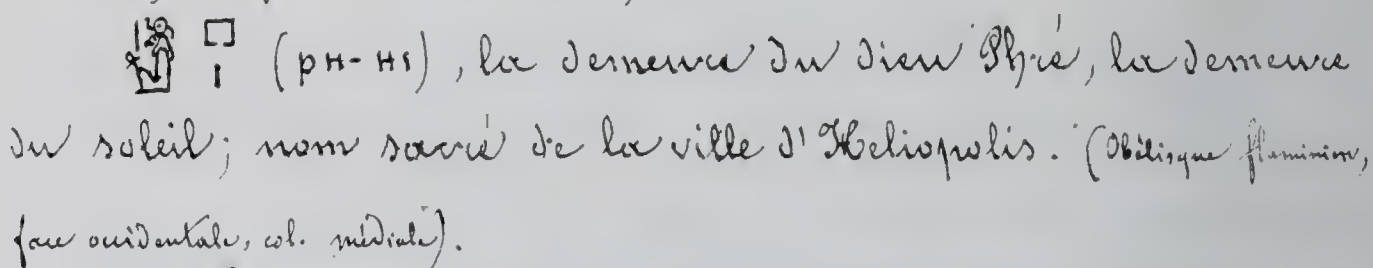 (ⲣⲏ-ⲏⲓ), la demeure du dieu Phré, la demeure
du soleil; nom sacré de la ville d'Heliopolis. (Obélisque flaminien,
face occidentale, col. médiale).